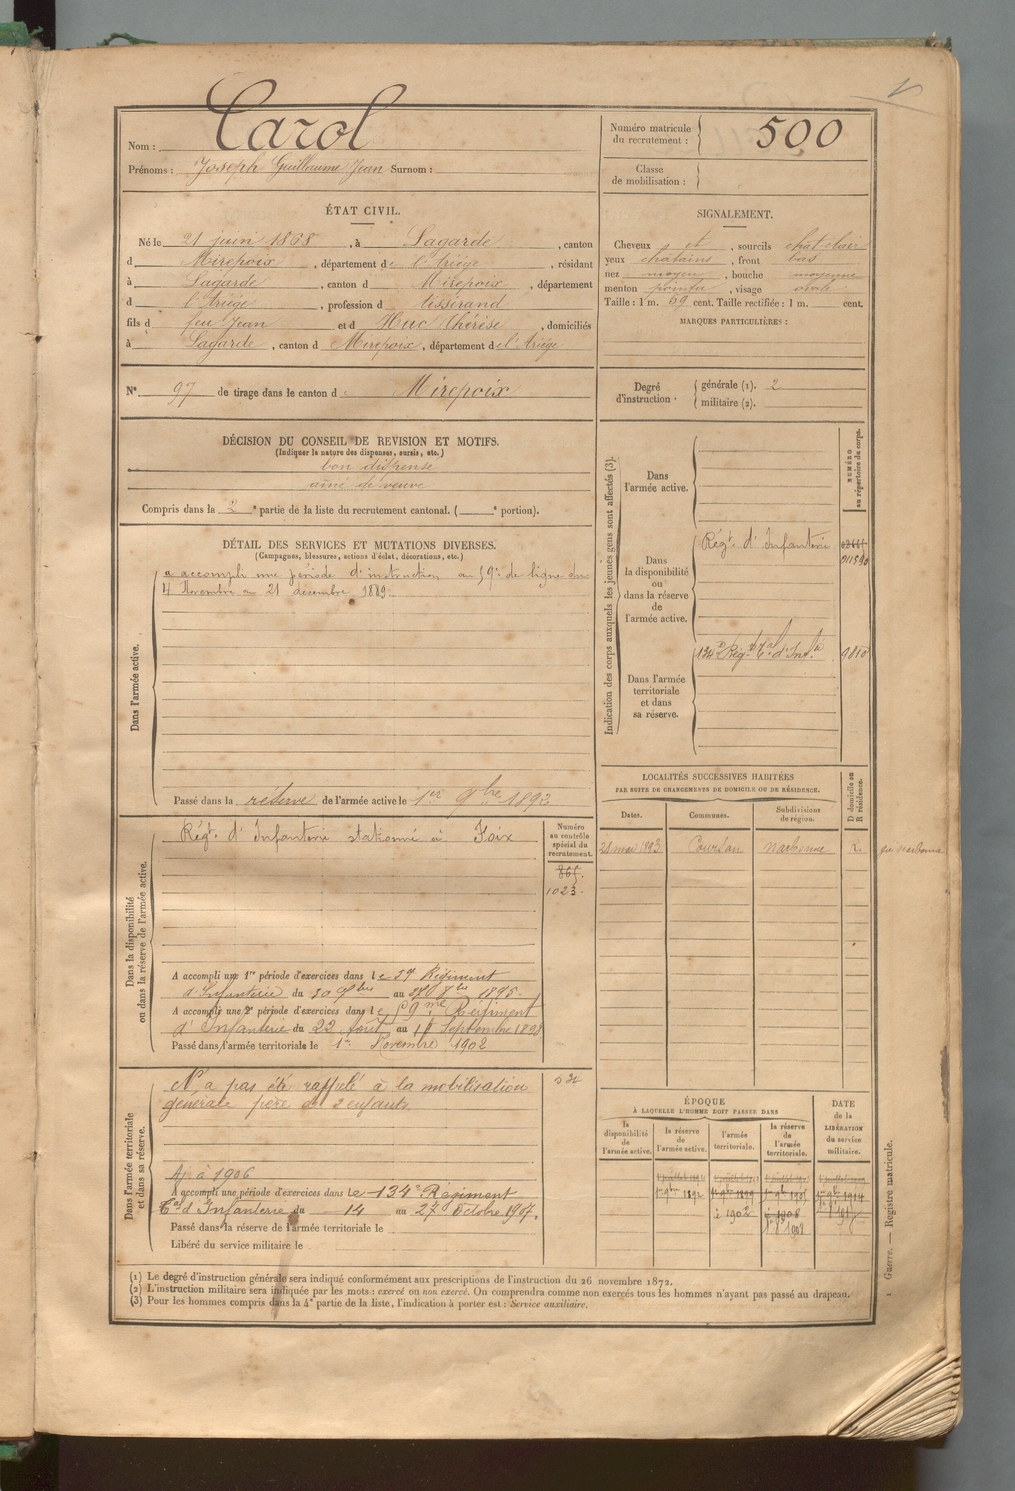 Nom : Carol
Prénoms : Joseph Guillaume Jean Surnom :
Numéro matricule du recrutement : 500
Classe de mobilisation :
ÉTAT CIVIL.
Né le 21 juin 1868, à Lagarde, canton
d Mirepoix, département de l'Ariège, résidant
à Lagarde, canton d Mirepoix, département
d l'Ariège, profession de tisserand
fils d feu Jean et d Huc Thérèse, domiciliés
à Lagarde, canton d Mirepoix, département de l'Ariége
SIGNALEMENT.
Cheveux et, sourcils chat clair
yeux chatains, front bas
nez moyen, bouche moyenne
menton pointu, visage ovale
Taille : 1 m. 59 cent. Taille rectifiée : 1 m. cent.
MARQUES PARTICULIÈRES :
N° 97 de tirage dans le canton d Mirepoix
Degré d'instruction : générale (1). 2
militaire (2).
DÉCISION DU CONSEIL DE REVISION ET MOTIFS.
(Indiquer la nature des dispenses, sursis, etc.)
bon dispensé
aîné de veuve
Compris dans la 2e partie de la liste du recrutement cantonal. ( e portion).
DÉTAIL DES SERVICES ET MUTATIONS DIVERSES.
(Campagnes, blessures, actions d'éclat, décorations, etc.)
Dans l'armée active.
a accompli une période d'instruction au 59e de ligne du
4 Novembre au 21 décembre 1889.
Passé dans la réserve de l'armée active le 1er 9bre 1892
Indication des corps auxquels les jeunes gens sont affectés (3).
NUMÉRO au répertoire du corps.
Dans l'armée active.
Dans la disponibilité ou dans la réserve de l'armée active.
Régt. d'Infanterie
Dans l'armée territoriale et dans sa réserve.
134e Régt tal d'Infie
Dans la disponibilité ou dans la réserve de l'armée active.
Régt. d'Infanterie stationné à Foix
Numéro au contrôle spécial du recrutement.
865.
1023.
A accompli une 1re période d'exercices dans le 59 Régiment
d'Infanterie du 30 9bre au 1895.
A accompli une 2e période d'exercices dans le 59me Régiment
d'Infanterie du 22 Août au Septembre 1898
Passé dans l'armée territoriale le 1er Novembre 1902
LOCALITÉS SUCCESSIVES HABITÉES
PAR SUITE DE CHANGEMENTS DE DOMICILE OU DE RÉSIDENCE.
D domicile ou R résidence.
Dates. Communes. Subdivisions de région.
21 mai 1893 Coursan Narbonne R.
Dans l'armée territoriale et dans sa réserve.
N'a pas été rappelé à la mobilisation
générale père de 2 enfants
Aj. à 1906
A accompli une période d'exercices dans le 134e Régiment
tal d'Infanterie du 14 au 27 Octobre 1907.
Passé dans la réserve de l'armée territoriale le
Libéré du service militaire le
ÉPOQUE
À LAQUELLE L'HOMME DOIT PASSER DANS
DATE de la LIBÉRATION du service militaire.
la disponibilité de l'armée active.
la réserve de l'armée active.
l'armée territoriale.
la réserve de l'armée territoriale.
1er 9bre 1892 1er 9bre 1899 1er 9bre 1914
Guerre. — Registre matricule.
(1) Le degré d'instruction générale sera indiqué conformément aux prescriptions de l'instruction du 26 novembre 1872.
(2) L'instruction militaire sera indiquée par les mots : exercé ou non exercé. On comprendra comme non exercés tous les hommes n'ayant pas passé au drapeau.
(3) Pour les hommes compris dans la 4e partie de la liste, l'indication à porter est : Service auxiliaire.